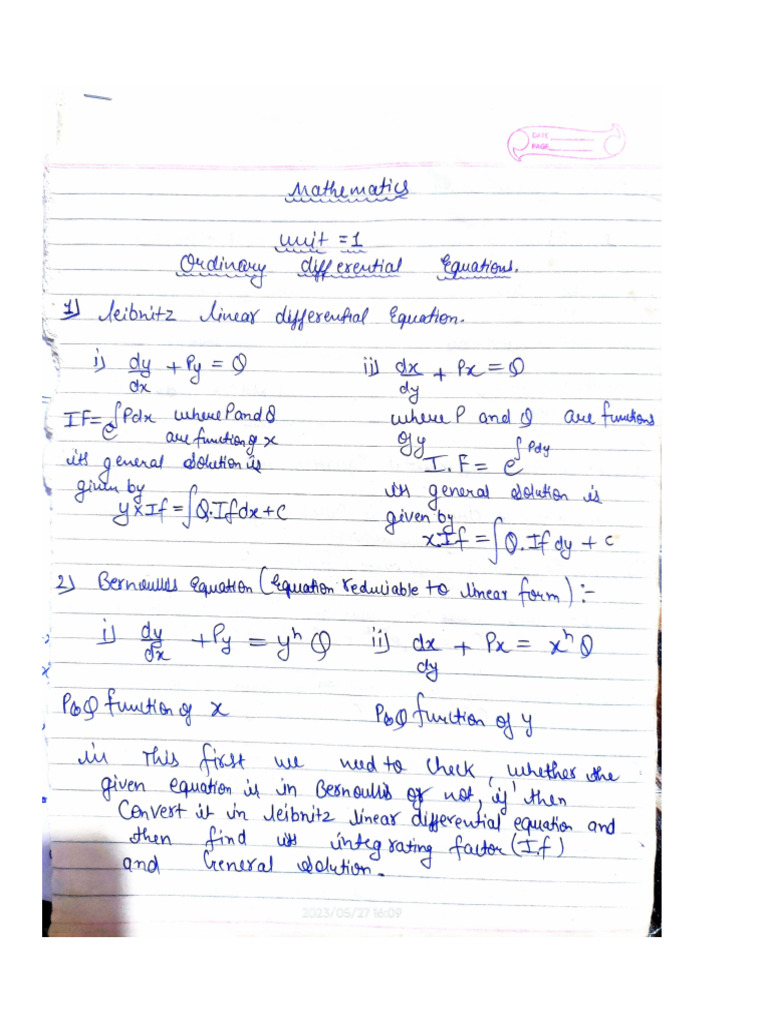 DATE
PAGE
Mathematics
unit = 1
Ordinary differential Equations.
1) leibnitz linear differential Equation.
i) dy/dx + Py = Q    ii) dx/dy + Px = Q
IF = e^∫Pdx where P and Q are function of x
its general solution is given by
y x If = ∫Q.If dx + c
where P and Q are functions of y
I.F = e^∫Pdy
its general solution is given by
x.If = ∫Q.If dy + c
2) Bernoullis equation (equation reduciable to linear form) :-
i) dy/dx + Py = y^n Q    ii) dx/dy + Px = x^n Q
P&Q function of x    P&Q function of y
in This first we need to check, whether the
given equation is in Bernoullis or not, 'if' then
Convert it in leibnitz linear differential equation and
then find its integrating factor (If)
and General solution.
2023/05/27 16:09